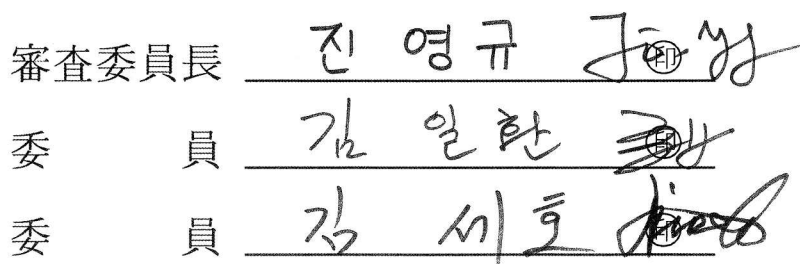 審査委員長 진 영 규 印
委 員 김 일 환 印
委 員 김 세 호 印